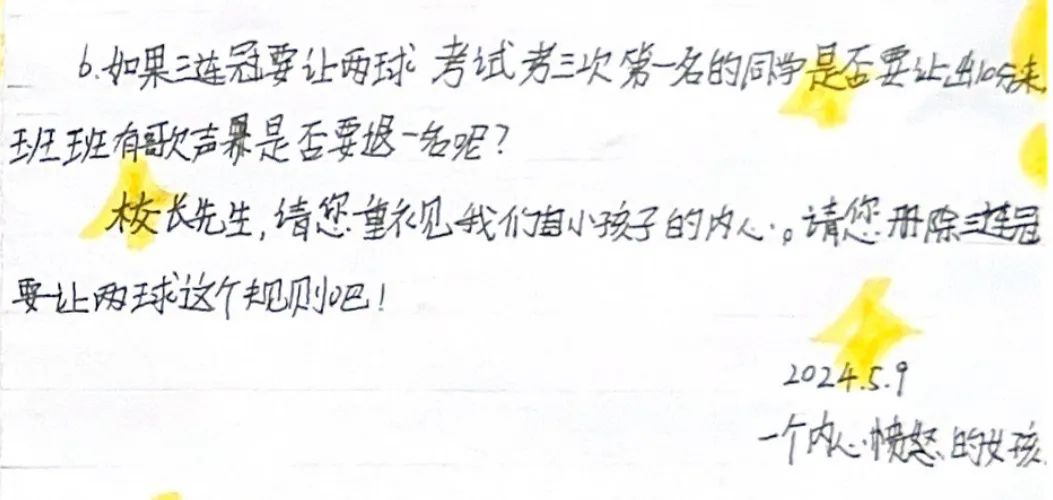 6.如果三连冠要让两球 考试考三次第一名的同学是否要让出10分来,
班班有歌声 是否要退一名呢?
校长先生,请您重视 我们 小孩子的内心。请您删除三连冠
要让两球这个规则吧!
2024.5.9
一个内心愤怒的女孩